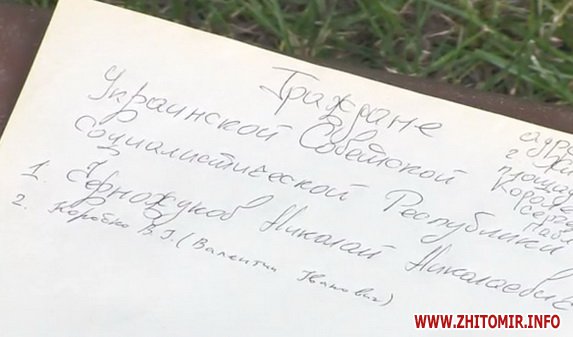 Граждане
Украинской Советской
Социалистической Республики
1. Черножуков Николай Николаевич
2. Коробко В.І. (Валентин Иванович)
адре
г Жи
площадь
Королёв
Серге
Павл
WWW.ZHITOMIR.INFO